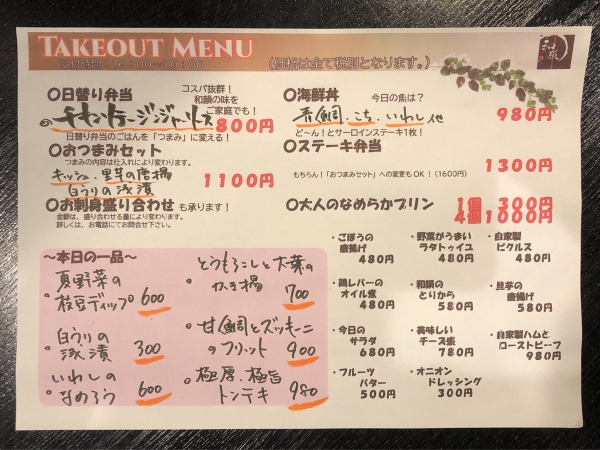 TAKEOUT MENU
受付時間：16：00～20：00
（価格は全て税別となります。）
和蔵
〇日替り弁当
コスパ抜群！
和韻の味を
ご家庭でも！
チキンジンジャーソース 800円
日替り弁当のごはんを「つまみ」に変える！
〇おつまみセット
つまみの内容は仕入れにより変わります。
キッシュ、里芋の唐揚
白うりの浅漬
1100円
〇お刺身盛り合わせ も承ります！
金額は、盛り合わせる量により変わります。
詳しくは、お電話にてお問合せ下さい。
〇海鮮丼
今日の魚は？
青鯛、こち、いわし 他
980円
ど～ん！とサーロインステーキ1枚！
〇ステーキ弁当
1300円
もちろん！「おつまみセット」への変更もOK！（1600円）
〇大人のなめらかプリン
1個 300円
4個1000円
～本日の一品～
夏野菜の
枝豆ディップ 600
白うりの
浅漬 300
いわしの
なめろう 600
とうもろこしと大葉の
かき揚 700
甘鯛とズッキーニ
のフリット 900
極厚、極旨
トンテキ 980
・ごぼうの
唐揚げ
480円
・野菜がうまい
ラタトゥイユ
480円
・自家製
ピクルス
480円
・鶏レバーの
オイル煮
480円
・和韻の
とりから
580円
・里芋の
唐揚げ
580円
・今日の
サラダ
680円
・美味しい
チーズ盛
780円
・自家製ハムと
ローストビーフ
980円
・フルーツ
バター
500円
・オニオン
ドレッシング
300円